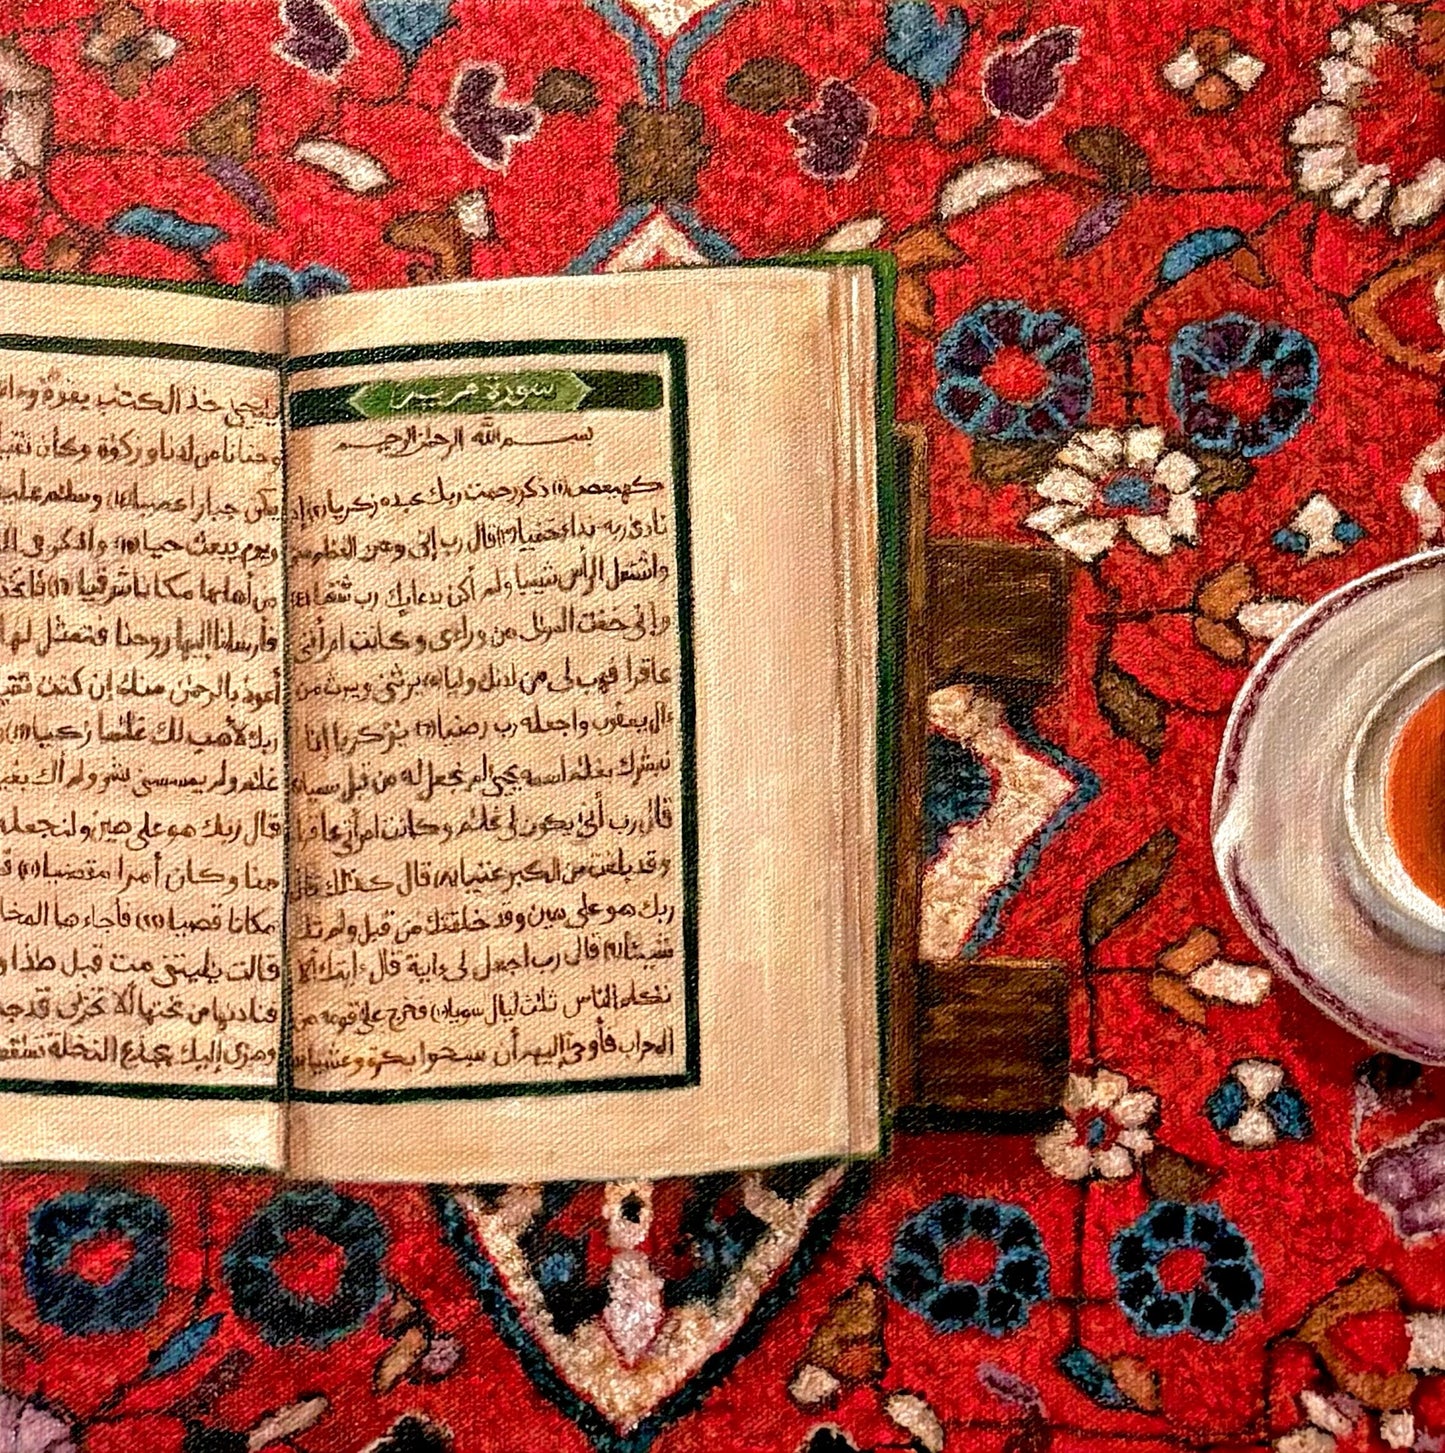 سورة مريم
بسم الله الرحمن الرحيم
كهيعص (١) ذكر رحمت ربك عبده زكريا (٢) إذ
نادى ربه نداء خفيا (٣) قال رب إنى وهن العظم منى
واشتعل الرأس شيبا ولم أكن بدعائك رب شقيا (٤)
وإنى خفت المولى من وراءى وكانت امرأتى
عاقرا فهب لى من لدنك وليا (٥) يرثنى ويرث من
ءال يعقوب واجعله رب رضيا (٦) يزكريا إنا
نبشرك بغلم اسمه يحيى لم نجعل له من قبل سميا (٧)
قال رب أنى يكون لى غلم وكانت امرأتى عاقرا
وقد بلغت من الكبر عتيا (٨) قال كذلك قال
ربك هو على هين وقد خلقتك من قبل ولم تك
شيئا (٩) قال رب اجعل لى ءاية قال ءايتك ألا
تكلم الناس ثلث ليال سويا (١٠) فخرج على قومه من
المحراب فأوحى إليهم أن سبحوا بكرة وعشيا (١١)
يايحيى خذ الكتب بقوة وءا
وحنانا من لدنا وزكوة وكان تقيا
يكن جبارا عصيا (١٤) وسلم عليه
ويوم يبعث حيا (١٥) واذكر فى ال
من أهلها مكانا شرقيا (١٦) فاتخذ
فأرسلنا إليها روحنا فتمثل لها
أعوذ بالرحمن منك إن كنت تقيا
ربك لأهب لك غلما زكيا (١٩)
غلم ولم يمسسنى بشر ولم أك بغيا
قال ربك هو على هين ولنجعله
منا وكان أمرا مقضيا (٢١)
مكانا قصيا (٢٢) فأجاءها المخا
قالت يليتنى مت قبل هذا و
فنادىها من تحتها ألا تحزنى قد جعل
وهزى إليك بجذع النخلة تسقط